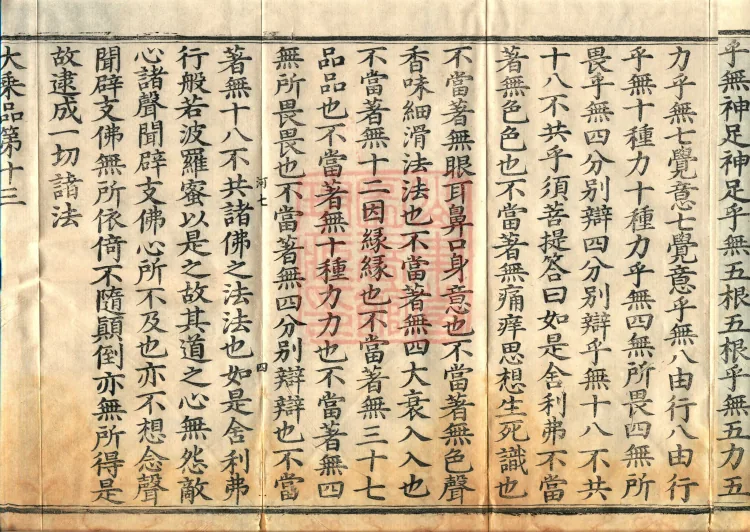 乎無神足神足乎無五根五根乎無五力五
力乎無七覺意七覺意乎無八由行八由行
乎無十種力十種力乎無四無所畏四無所
畏乎無四分别辯四分别辯乎無十八不共
十八不共乎須菩提答曰如是舍利弗不當
著無色色也不當著無痛痒思想生死識也
不當著無眼耳鼻口身意也不當著無色聲
香味細滑法法也不當著無四大衰入入也
不當著無十二因縁縁也不當著無三十七
品品也不當著無十種力力也不當著無四
無所畏畏也不當著無四分别辯辯也不當
河七 四
著無十八不共諸佛之法法也如是舍利弗
行般若波羅蜜以是之故其道之心無怨敵
心諸聲聞辟支佛心所不及也亦不想念聲
聞辟支佛無所依倚不隨顛倒亦無所得是
故逮成一切諸法
大乘品第十三